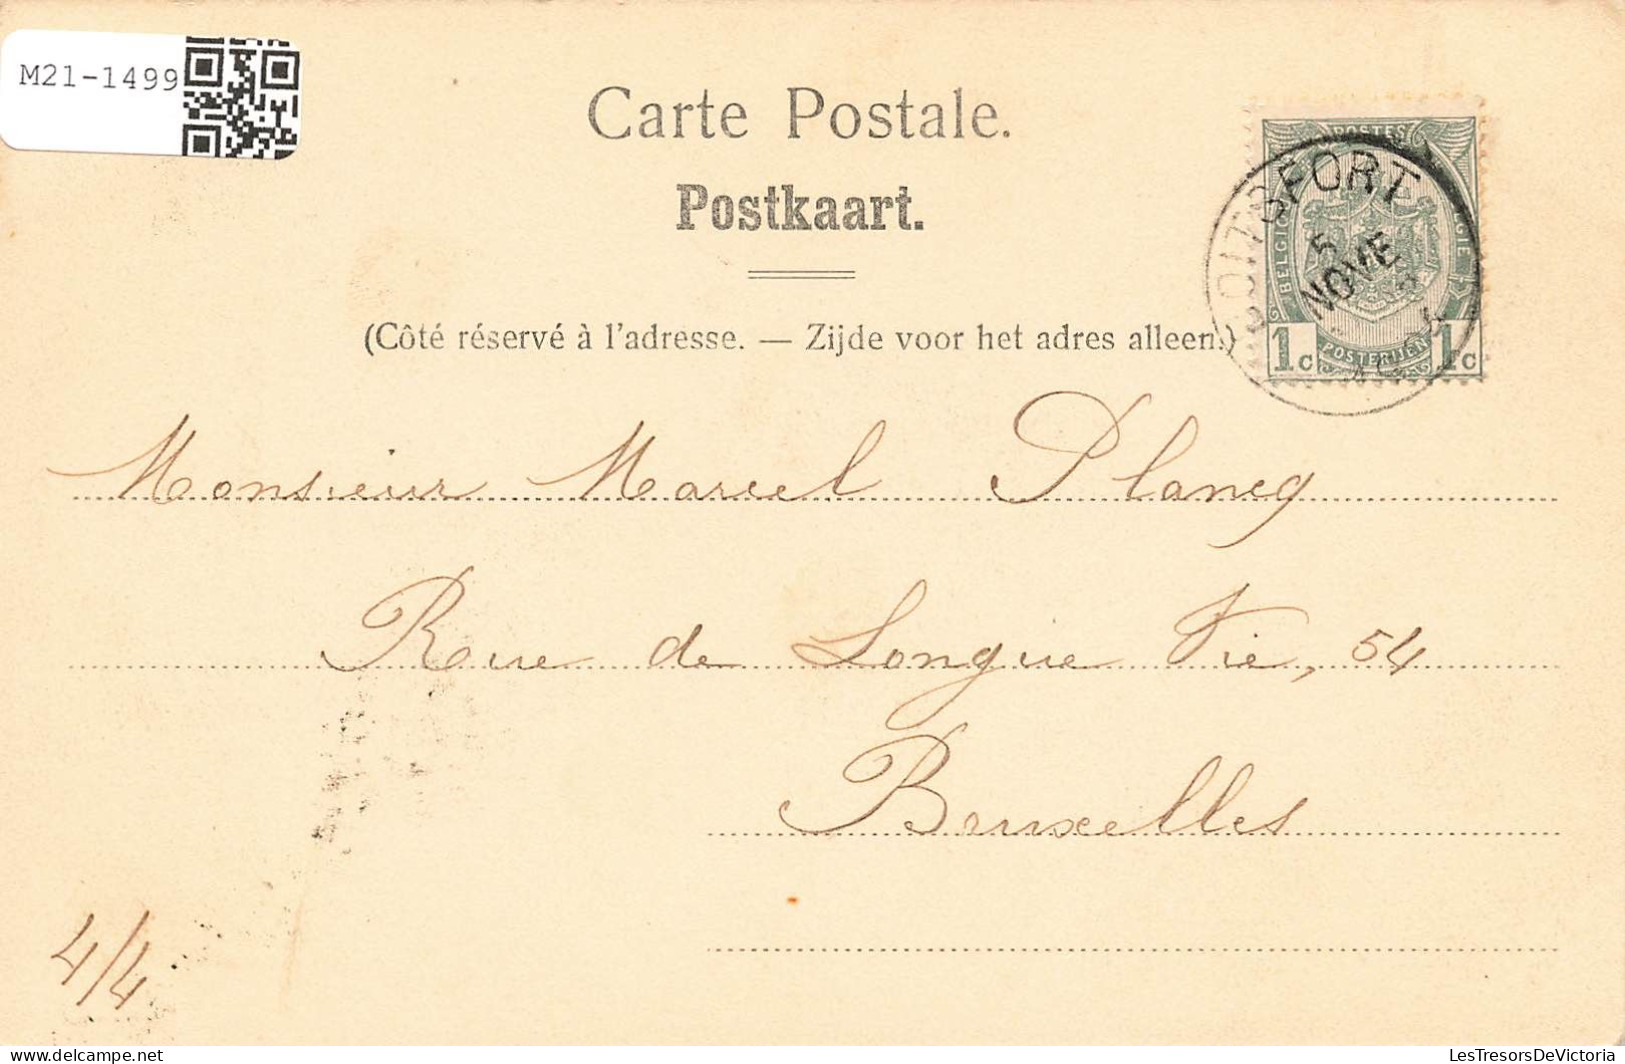 M21-1499
Carte Postale.
Postkaart.
(Côté réservé à l'adresse. — Zijde voor het adres alleen.)
POSTES
BELGIQUE
BELGIE
POSTERIJEN
1c 1c
BOITSFORT
5
NOVE
Monsieur Marcel Plancq
Rue de Longue Vie, 54
Bruxelles
4/4
delcampe.net
LesTresorsDeVictoria